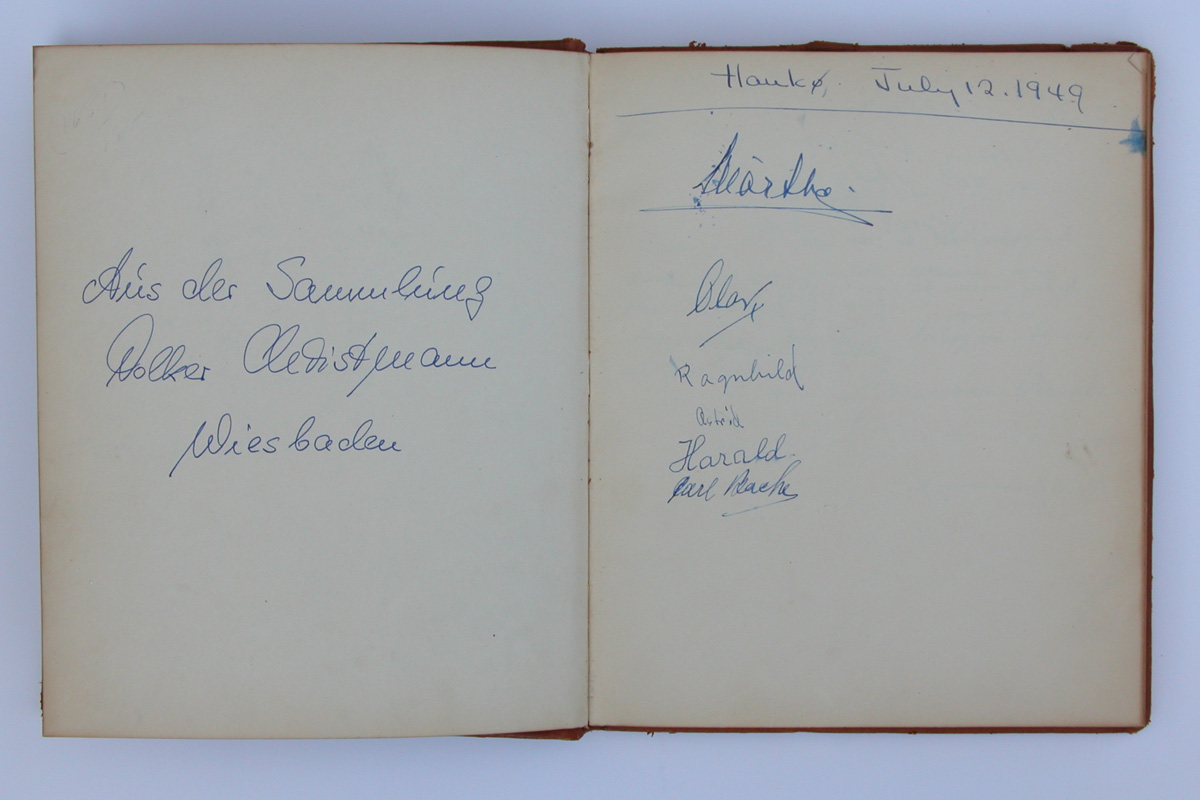 Aus der Sammlung
Volker
Wiesbaden
Hankø, July 12. 1949
Märtha.
Olav
Ragnhild
Astrid
Harald.
Carl